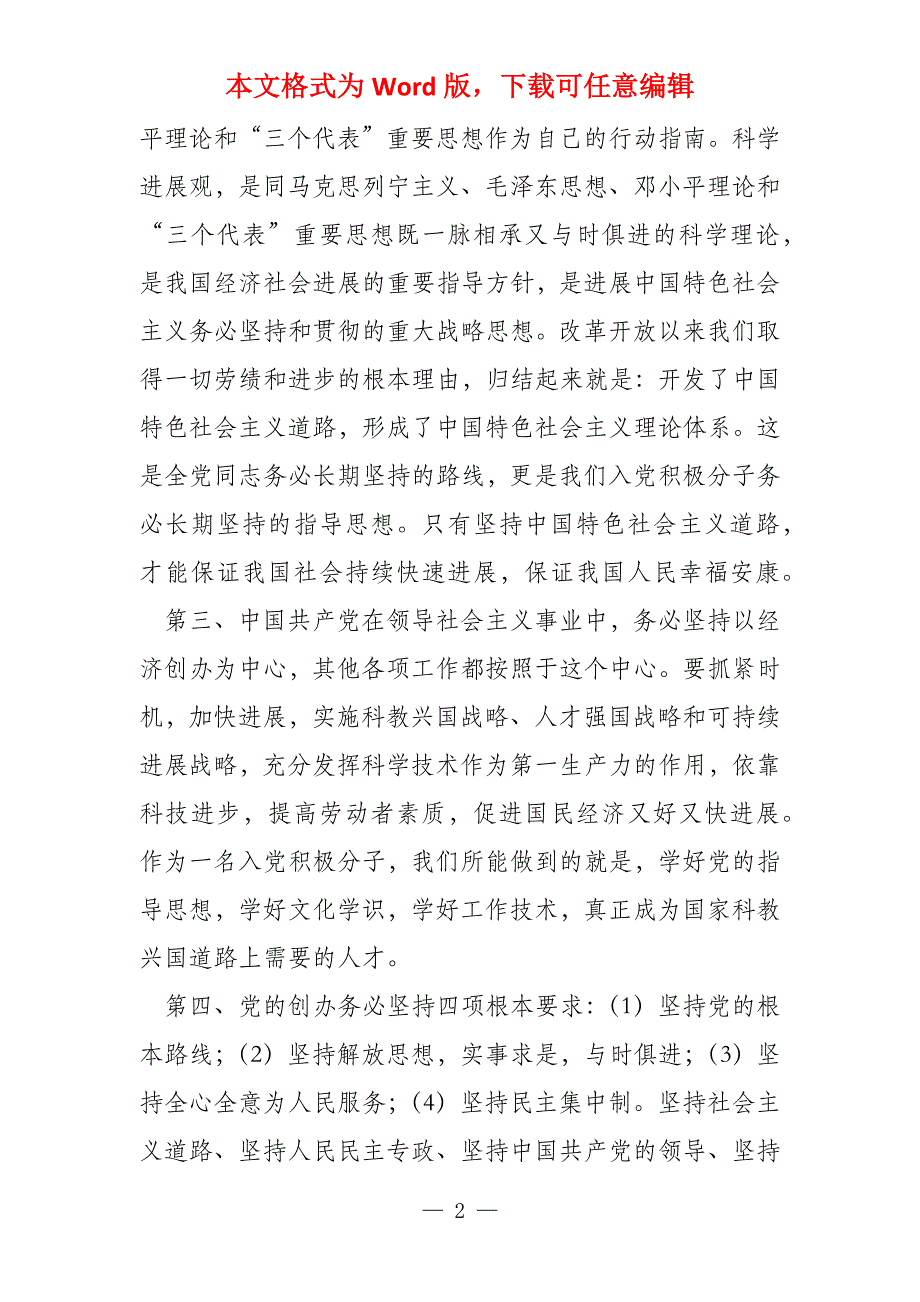 本文格式为 Word 版，下载可任意编辑
平理论和“三个代表”重要思想作为自己的行动指南。科学
进展观，是同马克思列宁主义、毛泽东思想、邓小平理论和
“三个代表”重要思想既一脉相承又与时俱进的科学理论，
是我国经济社会进展的重要指导方针，是进展中国特色社会
主义务必坚持和贯彻的重大战略思想。改革开放以来我们取
得一切劳绩和进步的根本理由，归结起来就是：开发了中国
特色社会主义道路，形成了中国特色社会主义理论体系。这
是全党同志务必长期坚持的路线，更是我们入党积极分子务
必长期坚持的指导思想。只有坚持中国特色社会主义道路，
才能保证我国社会持续快速进展，保证我国人民幸福安康。
第三、中国共产党在领导社会主义事业中，务必坚持以经
济创办为中心，其他各项工作都按照于这个中心。要抓紧时
机，加快进展，实施科教兴国战略、人才强国战略和可持续
进展战略，充分发挥科学技术作为第一生产力的作用，依靠
科技进步，提高劳动者素质，促进国民经济又好又快进展。
作为一名入党积极分子，我们所能做到的就是，学好党的指
导思想，学好文化学识，学好工作技术，真正成为国家科教
兴国道路上需要的人才。
第四、党的创办务必坚持四项根本要求：（1）坚持党的根
本路线；（2）坚持解放思想，实事求是，与时俱进；（3）坚
持全心全意为人民服务；（4）坚持民主集中制。坚持社会主
义道路、坚持人民民主专政、坚持中国共产党的领导、坚持
— 2 —